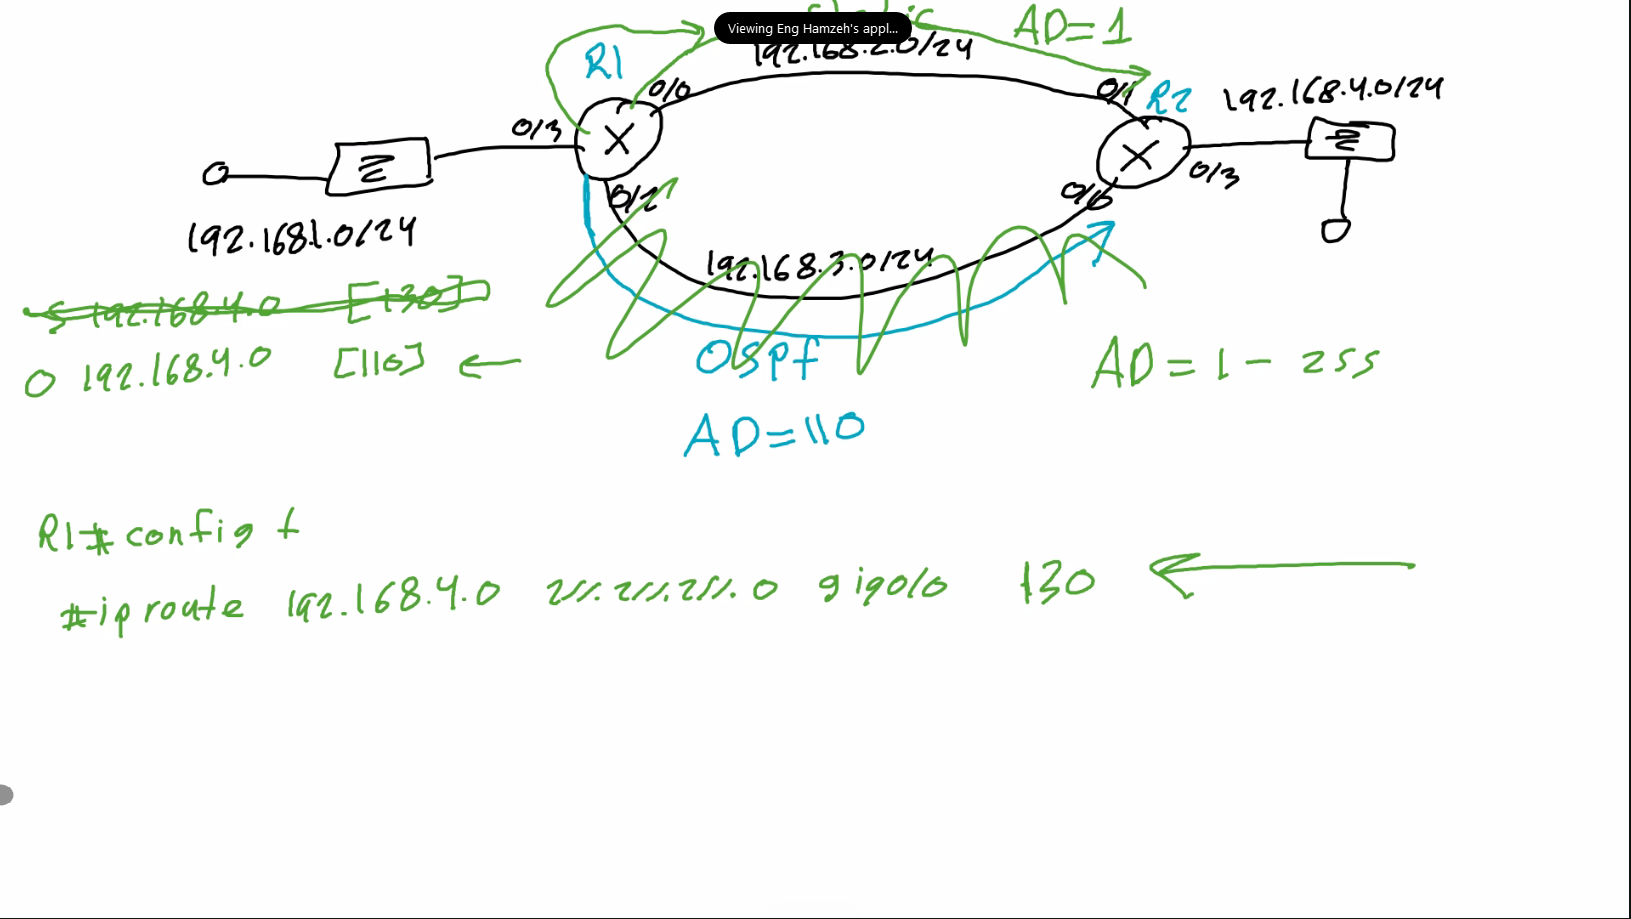 Viewing Eng Hamzeh's appl...
AD=1
192.168.2.0/24
R1
0/0
0/1
R2
192.168.4.0/24
0/3
0/3
192.168.1.0/24
0/2
0/0
192.168.3.0/24
S 192.168.4.0 [130]
O 192.168.4.0 [110] ←
OSPf
AD = 1 - 255
AD=110
R1# config t
#ip route 192.168.4.0 255.255.255.0 gig0/0 130